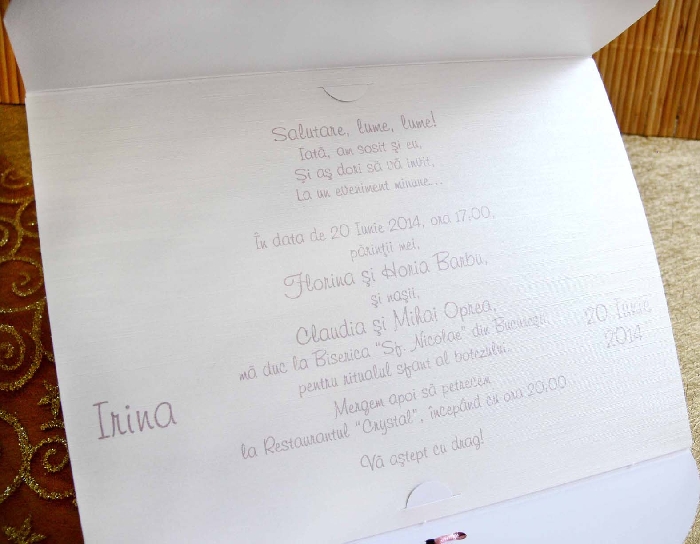 Salutare, lume, lume!
Iată, am sosit şi eu,
Şi aş dori să vă invit,
La un eveniment minune...
În data de 20 Iunie 2014, ora 17.00,
părinţii mei,
Florina şi Horia Barbu,
şi naşii,
Claudia şi Mihai Oprea,
mă duc la Biserica "Sf. Nicolae" din Bucureşti,
pentru ritualul sfânt al botezului.
Mergem apoi să petrecem
la Restaurantul "Crystal", începând cu ora 20.00
Vă aştept cu drag!
Irina
20 Iunie
2014